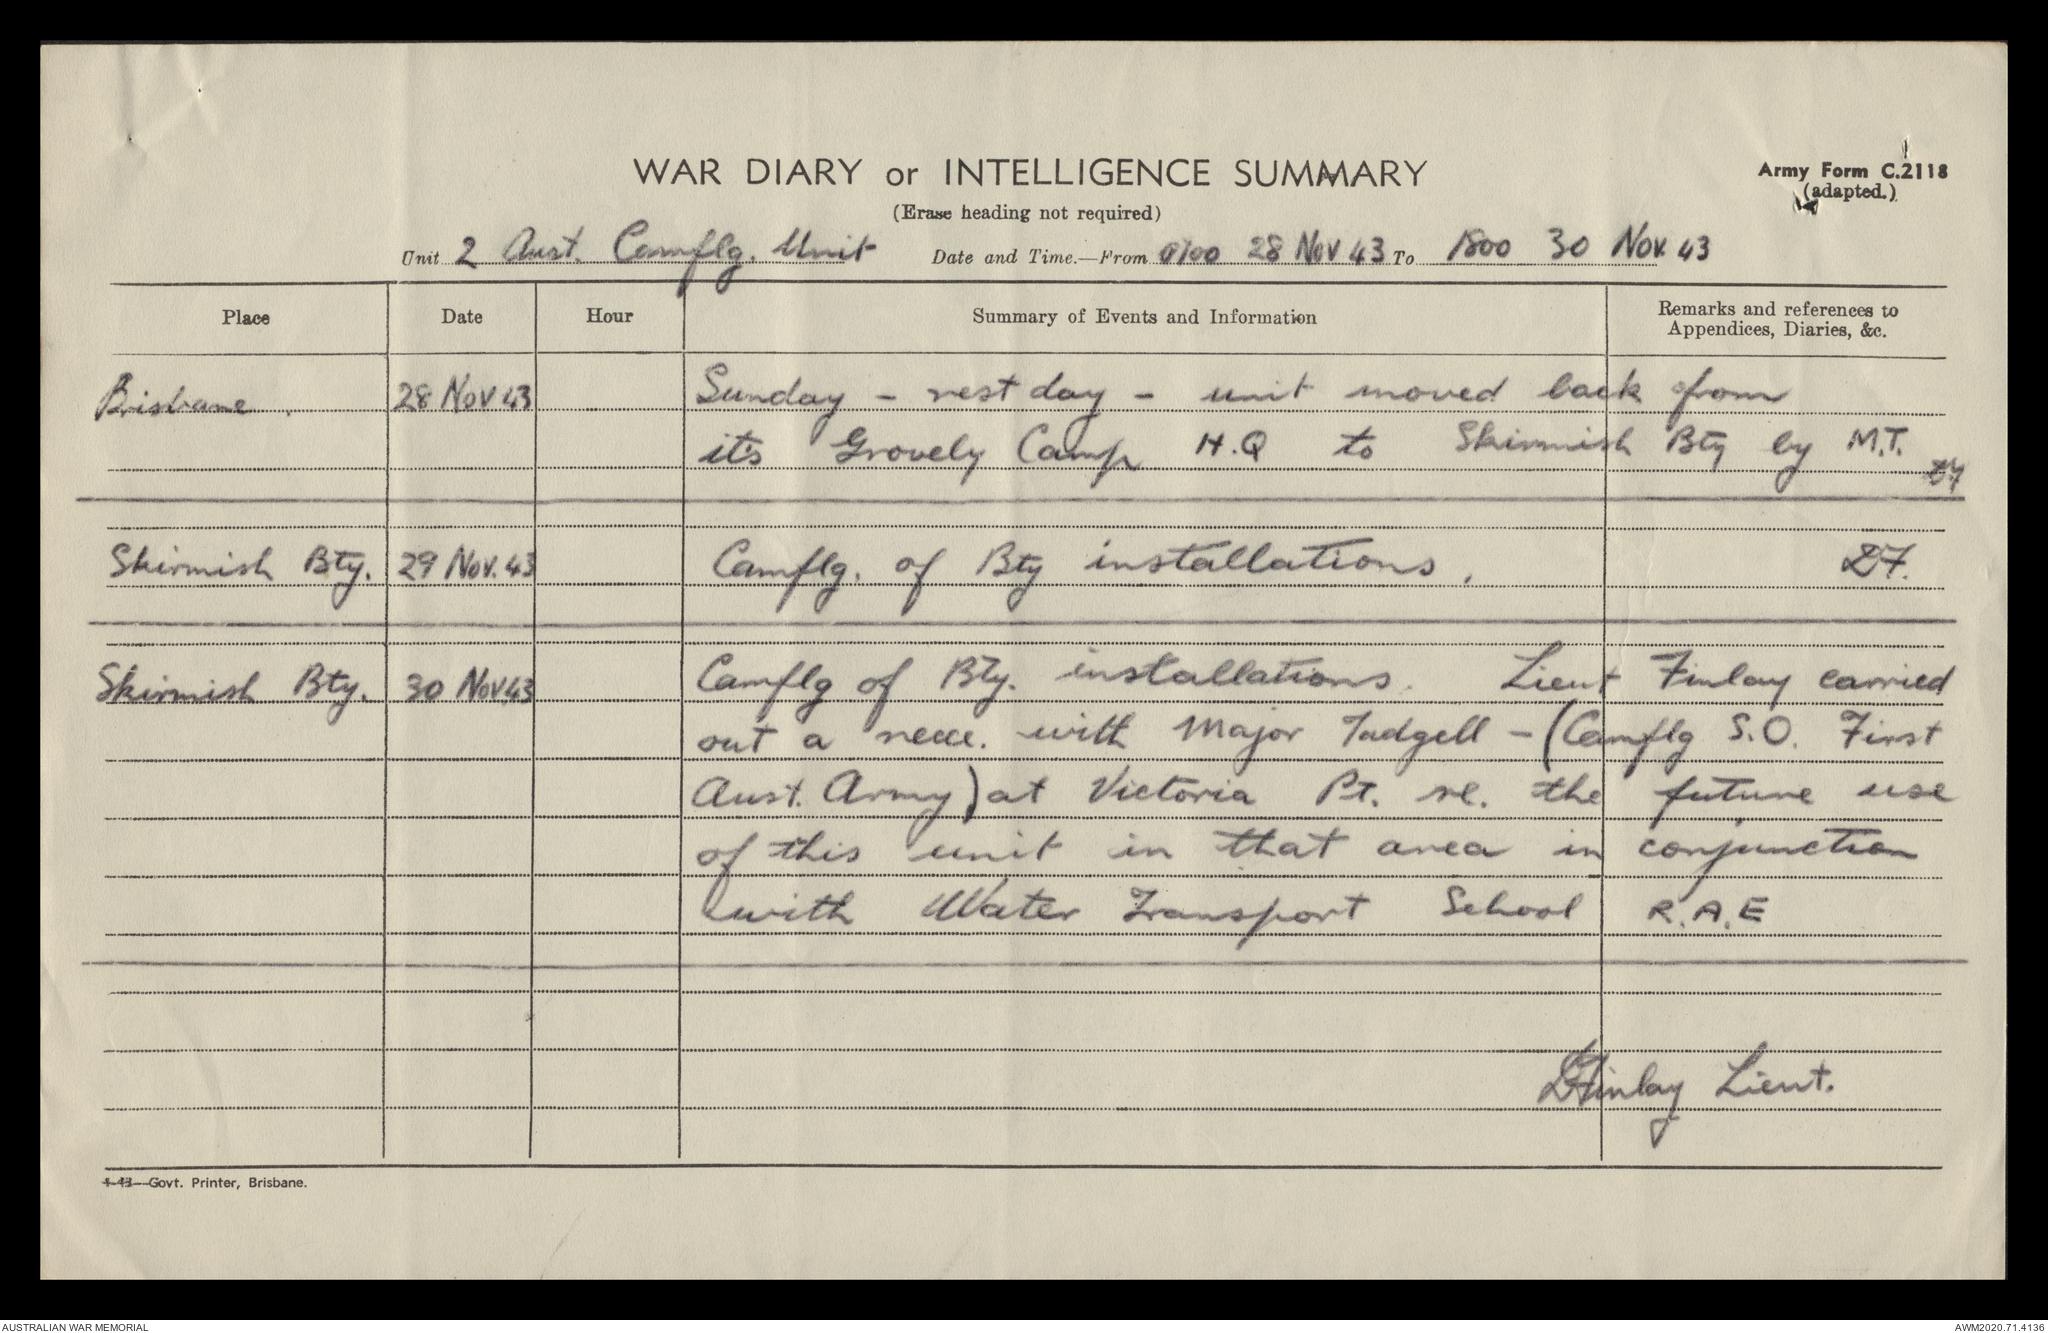 WAR DIARY or INTELLIGENCE SUMMARY
Army Form C.2118
(adapted.)
(Erase heading not required)
Unit 2 Aust. Camflg. Unit Date and Time.—From 0700 28 Nov 43 To 1800 30 Nov. 43
Place Date Hour Summary of Events and Information Remarks and references to
Appendices, Diaries, &c.
Brisbane. 28 Nov 43 Sunday - rest day - unit moved back from
it's Grovely Camp H.Q to Skirmish Bty by M.T.
Skirmish Bty. 29 Nov. 43 Camflg. of Bty installations. DF.
Skirmish Bty. 30 Nov.43 Camflg of Bty. installations. Lieut Finlay carried
out a recce. with Major Tadgell - (Camflg S.O. First
Aust. Army) at Victoria Pt. re. the future use
of this unit in that area in conjunction
with Water Transport School R.A.E
DFinlay Lieut.
4-43—Govt. Printer, Brisbane.
AUSTRALIAN WAR MEMORIAL AWM2020.71.4136